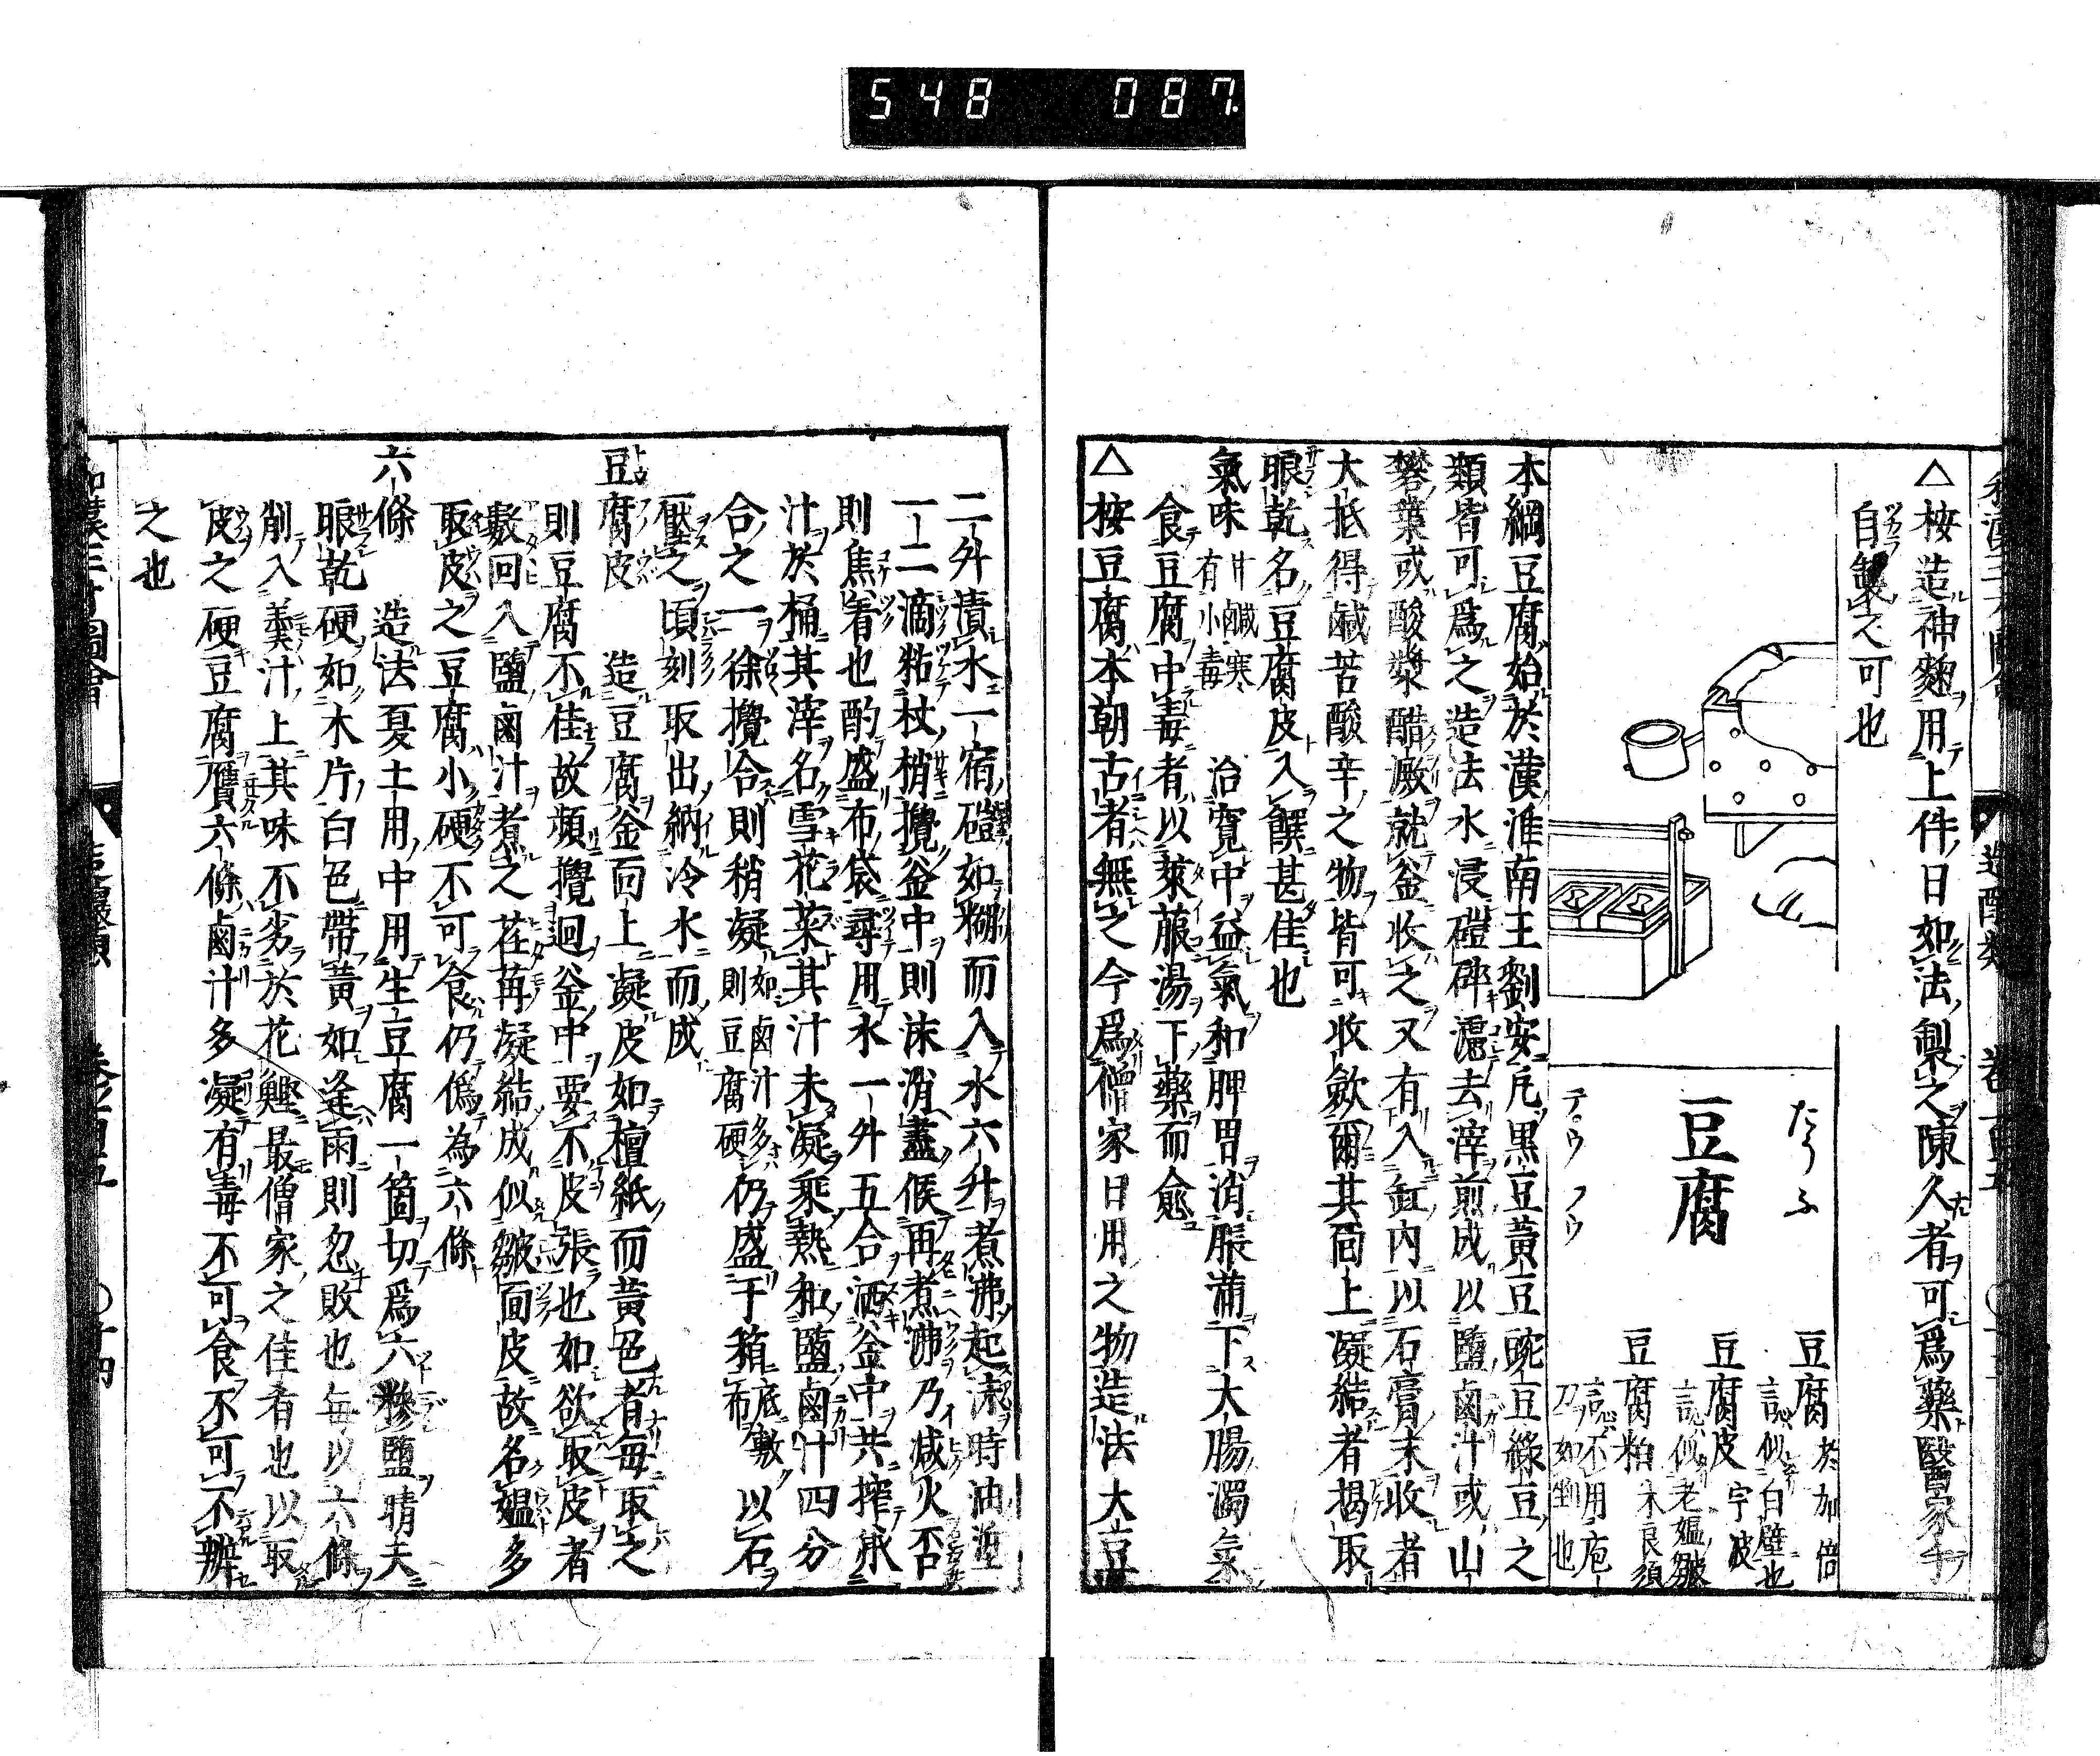 548 087
△按造神麹用上件日如法製之陳久者可爲藥醫家手
自製之可也
豆腐
たうふ
テウ フウ
豆腐 於加倍
言似白壁也
豆腐皮 宇波
言似老媼皺
豆腐粕 木良須
言不用庖
刀如剉也
本綱豆腐始於漢淮南王劉安凡黒豆黃豆豌豆綠豆之
類皆可爲之造法水浸磑碎濾去滓煎成以鹽鹵汁或山
礬葉或酸漿醋澱就釜收之又有入缸内以石膏末收者
大抵得鹹苦酸辛之物皆可收斂爾其面上凝結者揭取
眼乾名豆腐皮入饌甚佳也
氣味 甘鹹寒有小毒 治寬中益氣和脾胃消脹滿下大腸濁氣
食豆腐中毒者以萊菔湯下藥而愈
△按豆腐本朝古者無之今爲僧家日用之物造法大豆
二升漬水一宿磑如糊而入水六升煮沸起沫時油
一二滴粘杖梢攪釜中則沫消盡候再煮沸乃減火否
則焦着也酌盛布袋尋用水一升五合洒釜中共搾取
汁於桶其滓名雪花菜其汁未凝乘熱和鹽鹵汁四分
合之一徐攪合則稍凝 如鹵汁多則豆腐硬 仍盛于箱 底敷布 以石
壓之頃刻取出納冷水而成
豆腐皮 造豆腐釜面上凝皮如檀紙而黃色者毎取之
則豆腐不佳故頻攪迴釜中要不皮張也如欲取皮者
數回入鹽鹵汁煮之荏苒凝結成似皺面皮故名媼多
取皮之豆腐小硬不可食仍僞為六條
六條 造法夏土用中用生豆腐一箇切爲六糝鹽晴天
眼乾硬如木片白色帶黃如逢雨則忽敗也毎以六條
削入羹汁上其味不劣於花鰹最僧家之佳肴也以取
皮之硬豆腐贋六條鹵汁多凝有毒不可食不可不辨
之也